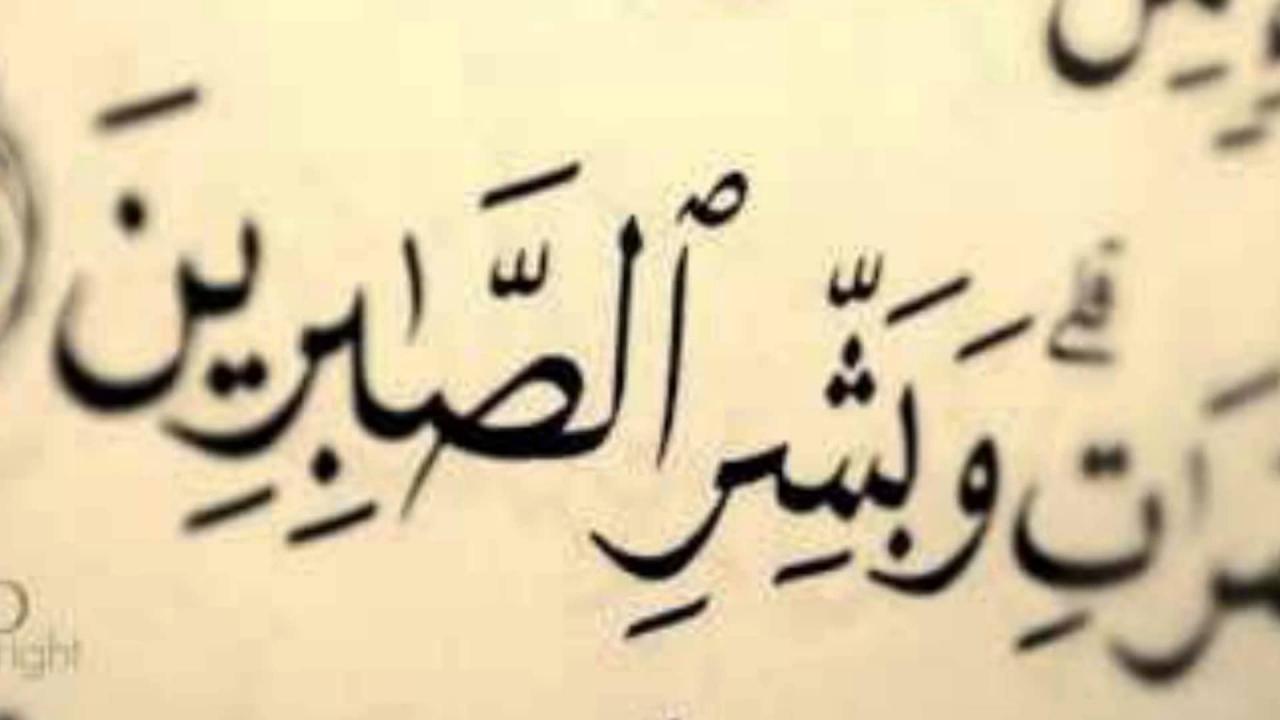 ـمَرَٰتِۗ وَبَشِّرِ ٱلصَّـٰبِرِينَ
right